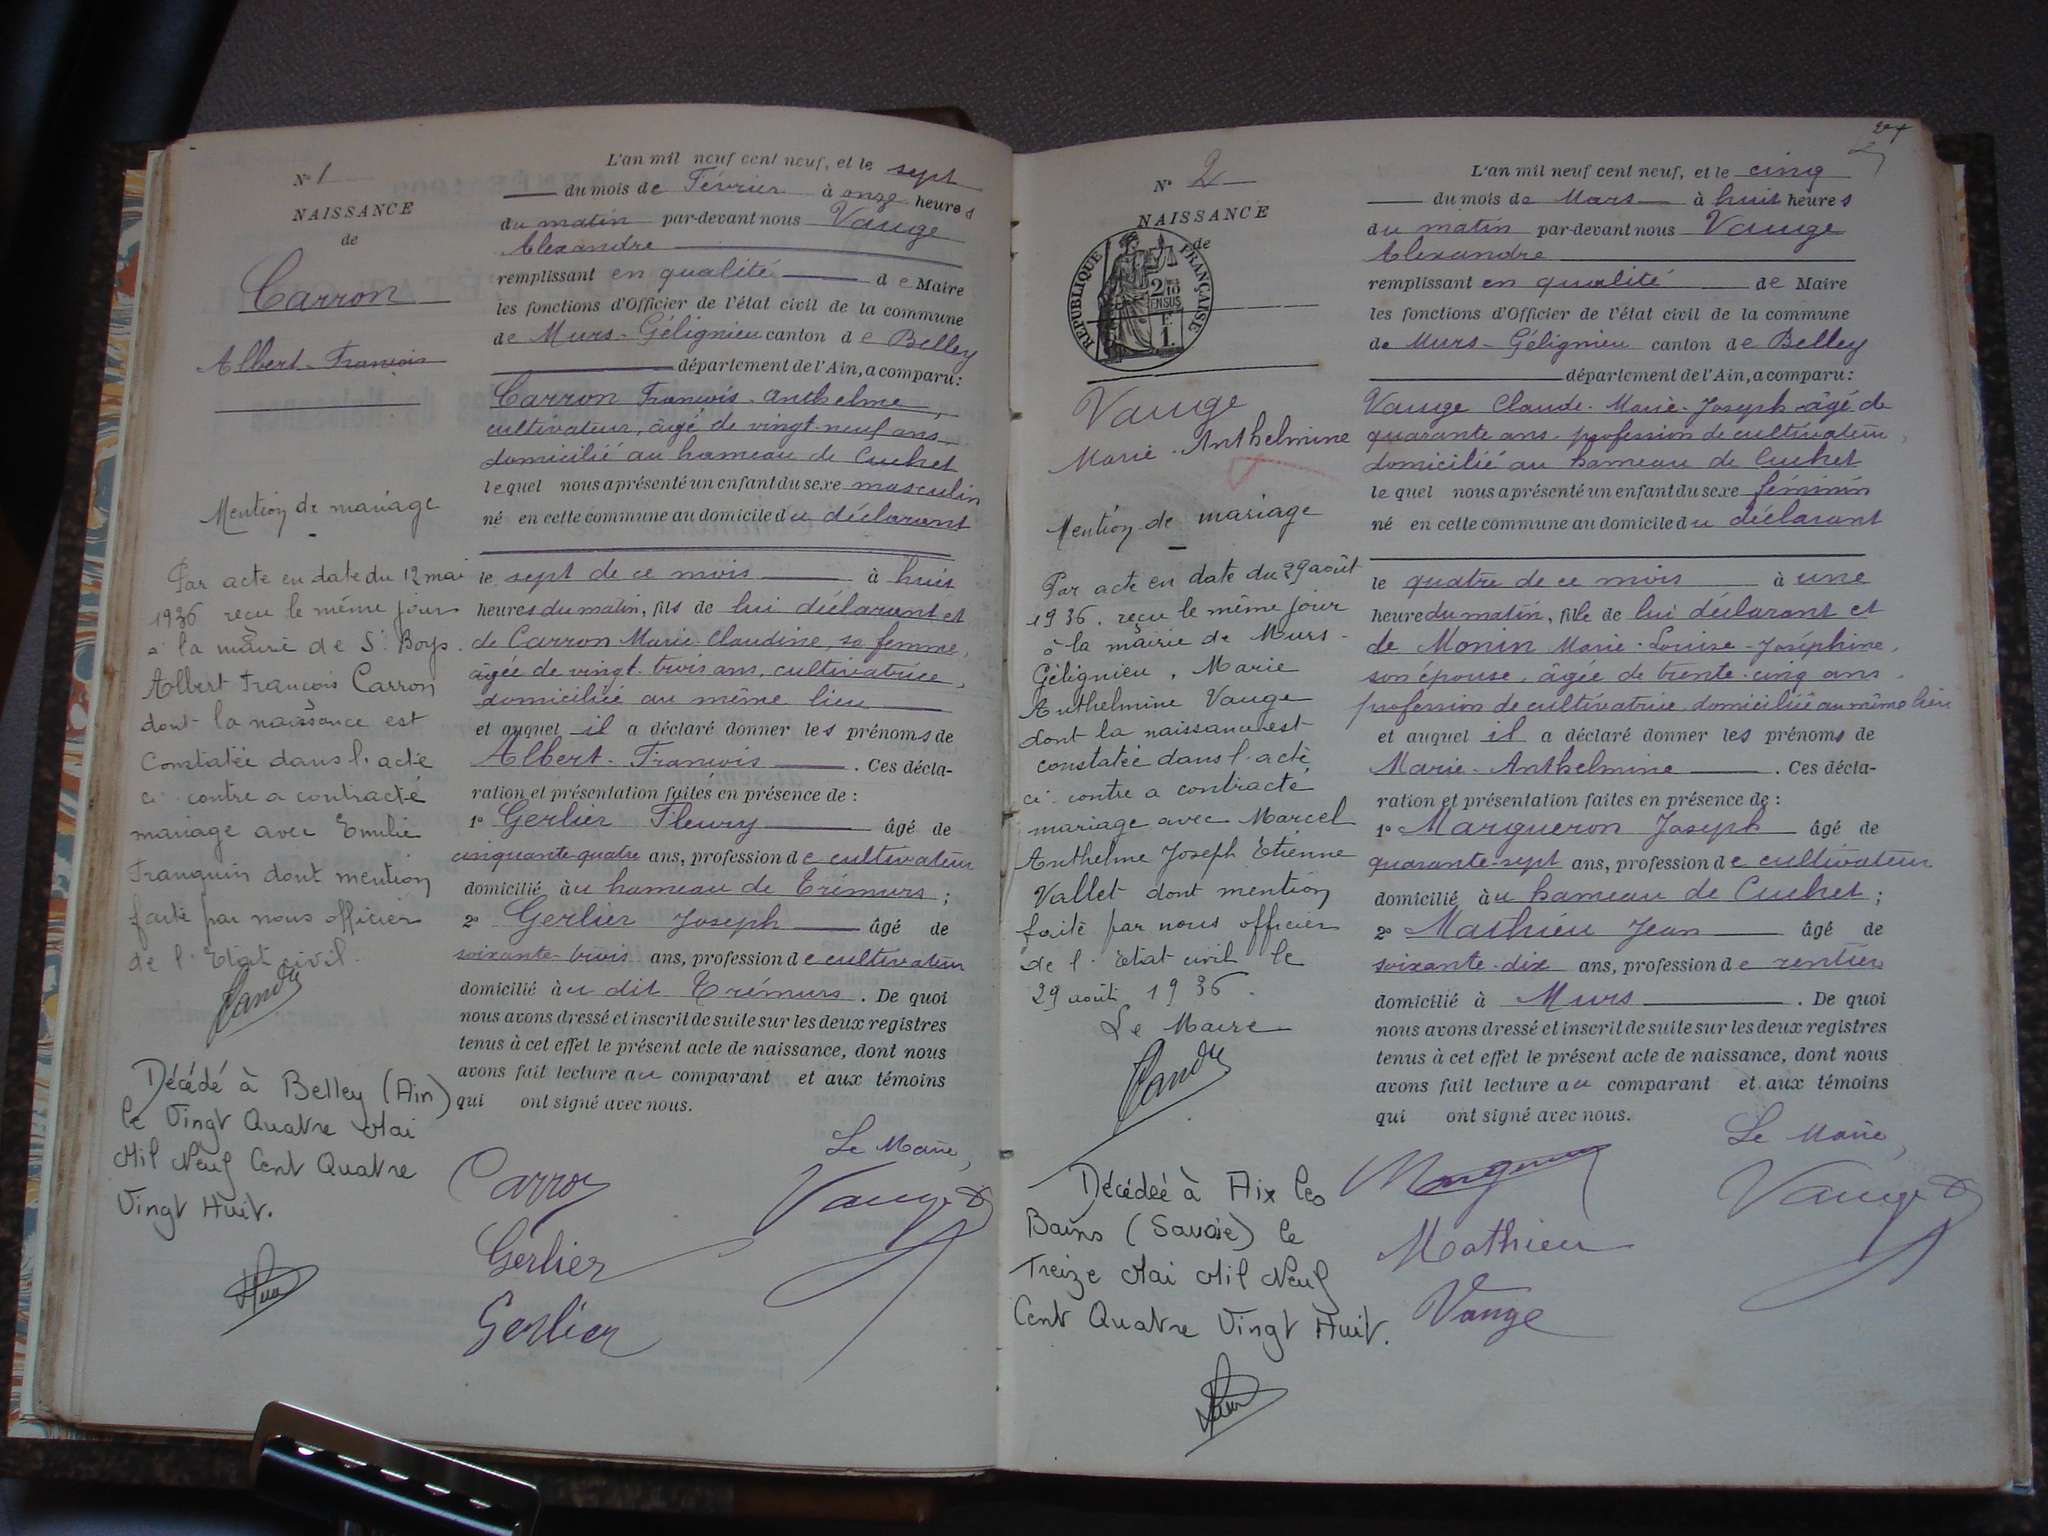 N° 1
NAISSANCE
de
Carron
Albert-François
Mention de mariage
Par acte en date du 12 mai
1936 reçu le même jour
à la mairie de St Boys.
Albert François Carron
dont la naissance est
Constatée dans l'acte
ci-contre a contracté
mariage avec Emilie
Franquin dont mention
faite par nous officier
de l'Etat civil.
Décédé à Belley (Ain)
le Vingt Quatre Mai
Mil Neuf Cent Quatre
Vingt Huit.
L'an mil neuf cent neuf, et le sept
du mois de Février à onze heures
du matin par-devant nous Vauge
Alexandre
remplissant en qualité de Maire
les fonctions d'Officier de l'état civil de la commune
de Murs-Gélignieu canton de Belley
département de l'Ain, a comparu:
Carron François-Anthelme,
cultivateur, âgé de vingt-neuf ans
domicilié au hameau de Cuchet
lequel nous a présenté un enfant du sexe masculin
né en cette commune au domicile du déclarant
le sept de ce mois à huit
heures du matin, fils de lui déclarant et
de Carron Marie-Claudine, sa femme,
âgée de vingt-trois ans, cultivatrice,
domiciliée au même lieu
et auquel il a déclaré donner les prénoms de
Albert-François . Ces décla-
ration et présentation faites en présence de :
1° Gerlier Fleury âgé de
cinquante-quatre ans, profession de cultivateur
domicilié au hameau de Trémurs ;
2° Gerlier Joseph âgé de
soixante-trois ans, profession de cultivateur
domicilié au dit Trémurs . De quoi
nous avons dressé et inscrit de suite sur les deux registres
tenus à cet effet le présent acte de naissance, dont nous
avons fait lecture au comparant et aux témoins
qui ont signé avec nous.
Le Maire,
Carron Vauge
Gerlier
Gerlier
N° 2
NAISSANCE
de
RÉPUBLIQUE FRANÇAISE
2/10
EN SUS
F.
1.
Vauge
Marie-Anthelmine
Mention de mariage
Par acte en date du 29 août
1936, reçu le même jour
à la mairie de Murs-
Gélignieu, Marie
Anthelmine Vauge
dont la naissance est
constatée dans l'acte
ci-contre a contracté
mariage avec Marcel
Anthelme Joseph Etienne
Vallet dont mention
faite par nous officier
de l'Etat civil le
29 août 1936.
Le Maire
Décédée à Aix les
Bains (Savoie) le
Treize Mai Mil Neuf
Cent Quatre Vingt Huit.
L'an mil neuf cent neuf, et le cinq
du mois de Mars à huit heures
du matin par-devant nous Vauge
Alexandre
remplissant en qualité de Maire
les fonctions d'Officier de l'état civil de la commune
de Murs-Gélignieu canton de Belley
département de l'Ain, a comparu:
Vauge Claude-Marie-Joseph âgé de
quarante ans, profession de cultivateur,
domicilié au hameau de Cuchet
lequel nous a présenté un enfant du sexe féminin
né en cette commune au domicile du déclarant
le quatre de ce mois à une
heure du matin, fille de lui déclarant et
de Monin Marie-Louise-Joséphine,
son épouse, âgée de trente-cinq ans,
profession de cultivatrice domiciliée au même lieu
et auquel il a déclaré donner les prénoms de
Marie-Anthelmine . Ces décla-
ration et présentation faites en présence de :
1° Margueron Joseph âgé de
quarante-sept ans, profession de cultivateur
domicilié au hameau de Cuchet ;
2° Mathieu Jean âgé de
soixante-dix ans, profession de rentier
domicilié à Murs . De quoi
nous avons dressé et inscrit de suite sur les deux registres
tenus à cet effet le présent acte de naissance, dont nous
avons fait lecture au comparant et aux témoins
qui ont signé avec nous.
Le Maire,
Margueron Vauge
Mathieu
Vauge